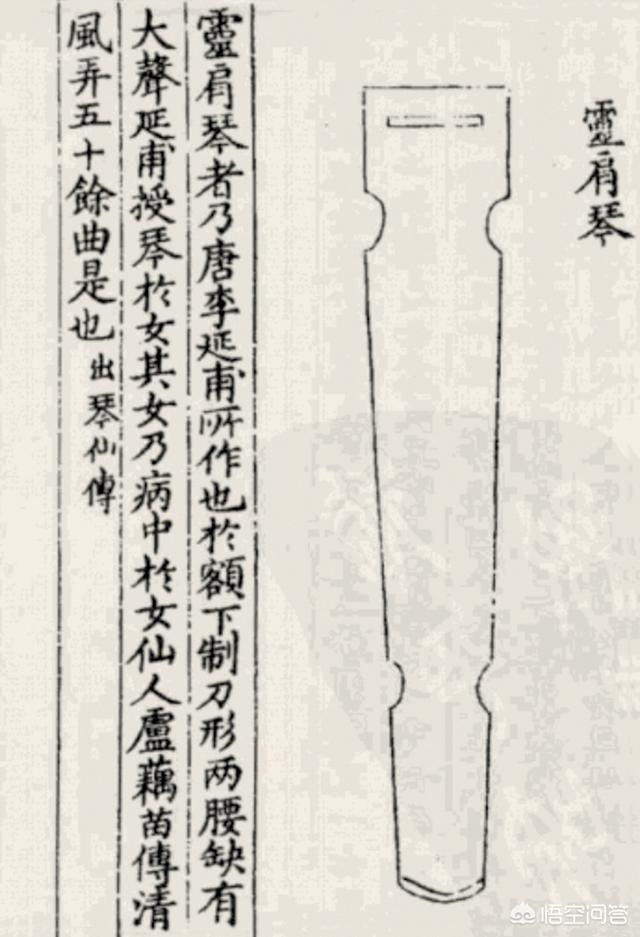 靈肩琴
靈肩琴者乃唐李延甫所作也於額下制刀形两腰缺有
大聲延甫授琴於女其女乃病中於女仙人盧藕苗傳清
風弄五十餘曲是也出琴仙傳
悟空问答